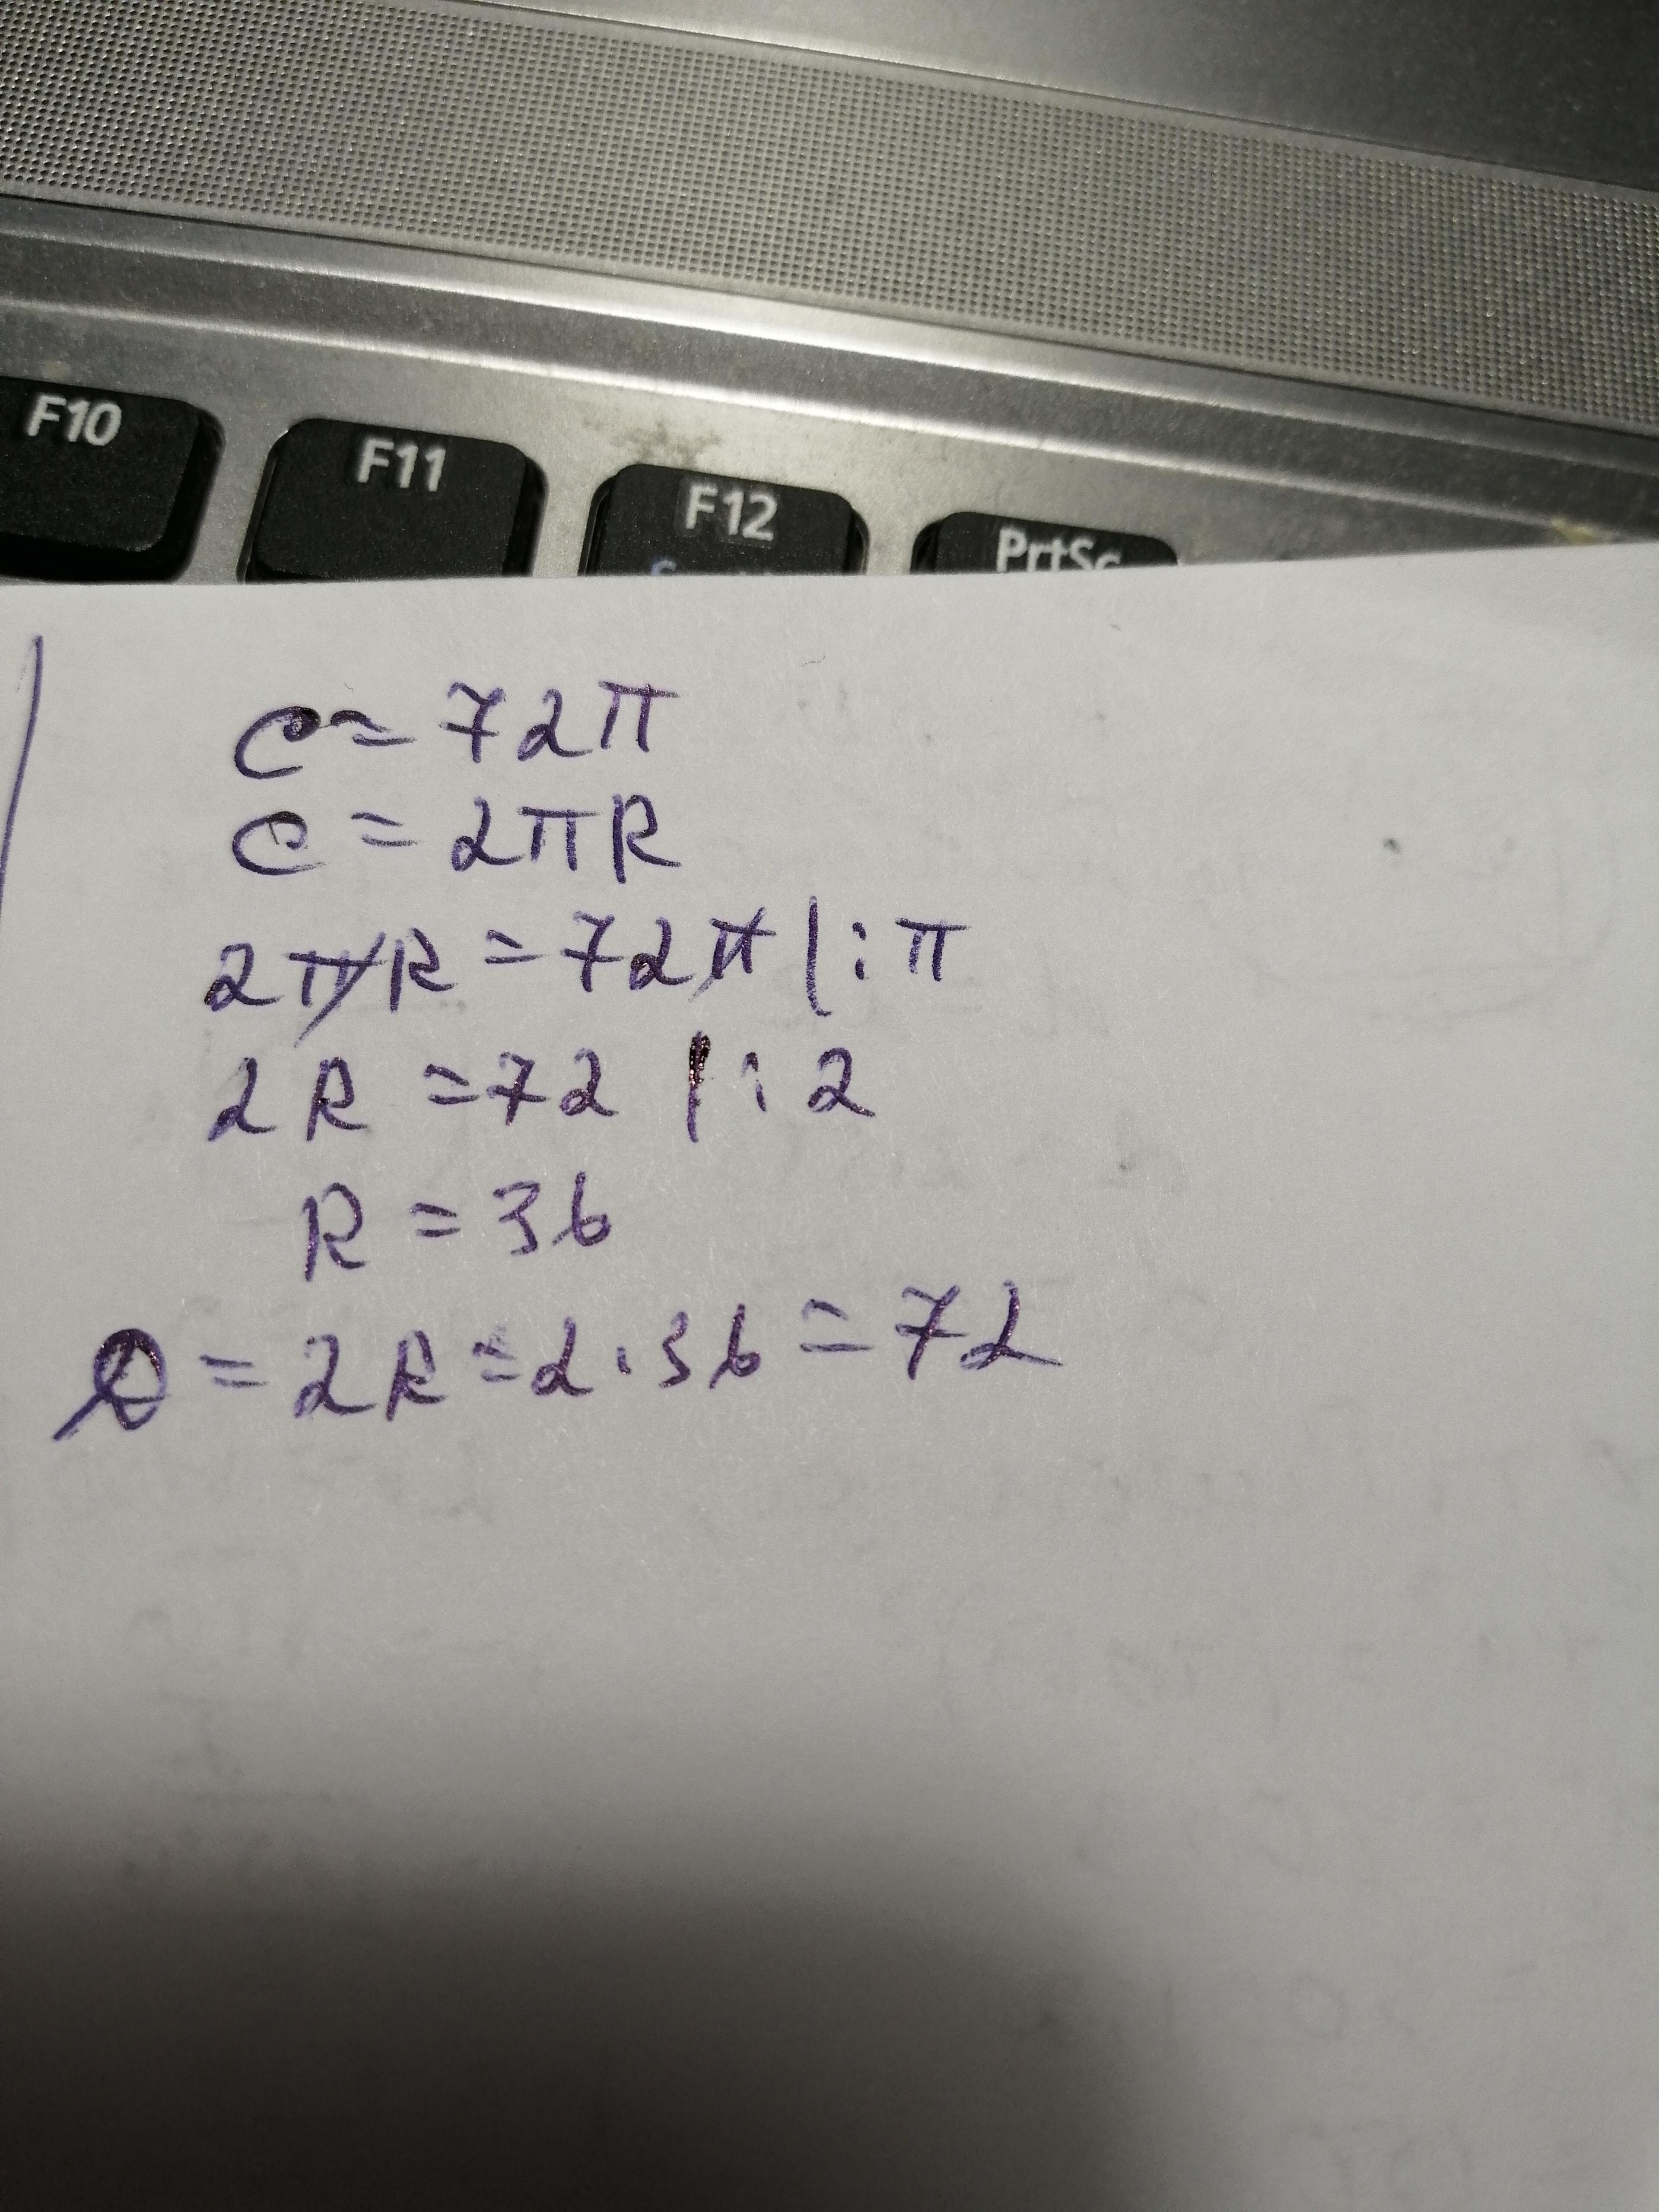 F10 F11 F12 PrtSc
C = 72π
C = 2πR
2πR = 72π |:π
2R = 72 |:2
R = 36
D = 2R = 2·36 = 72